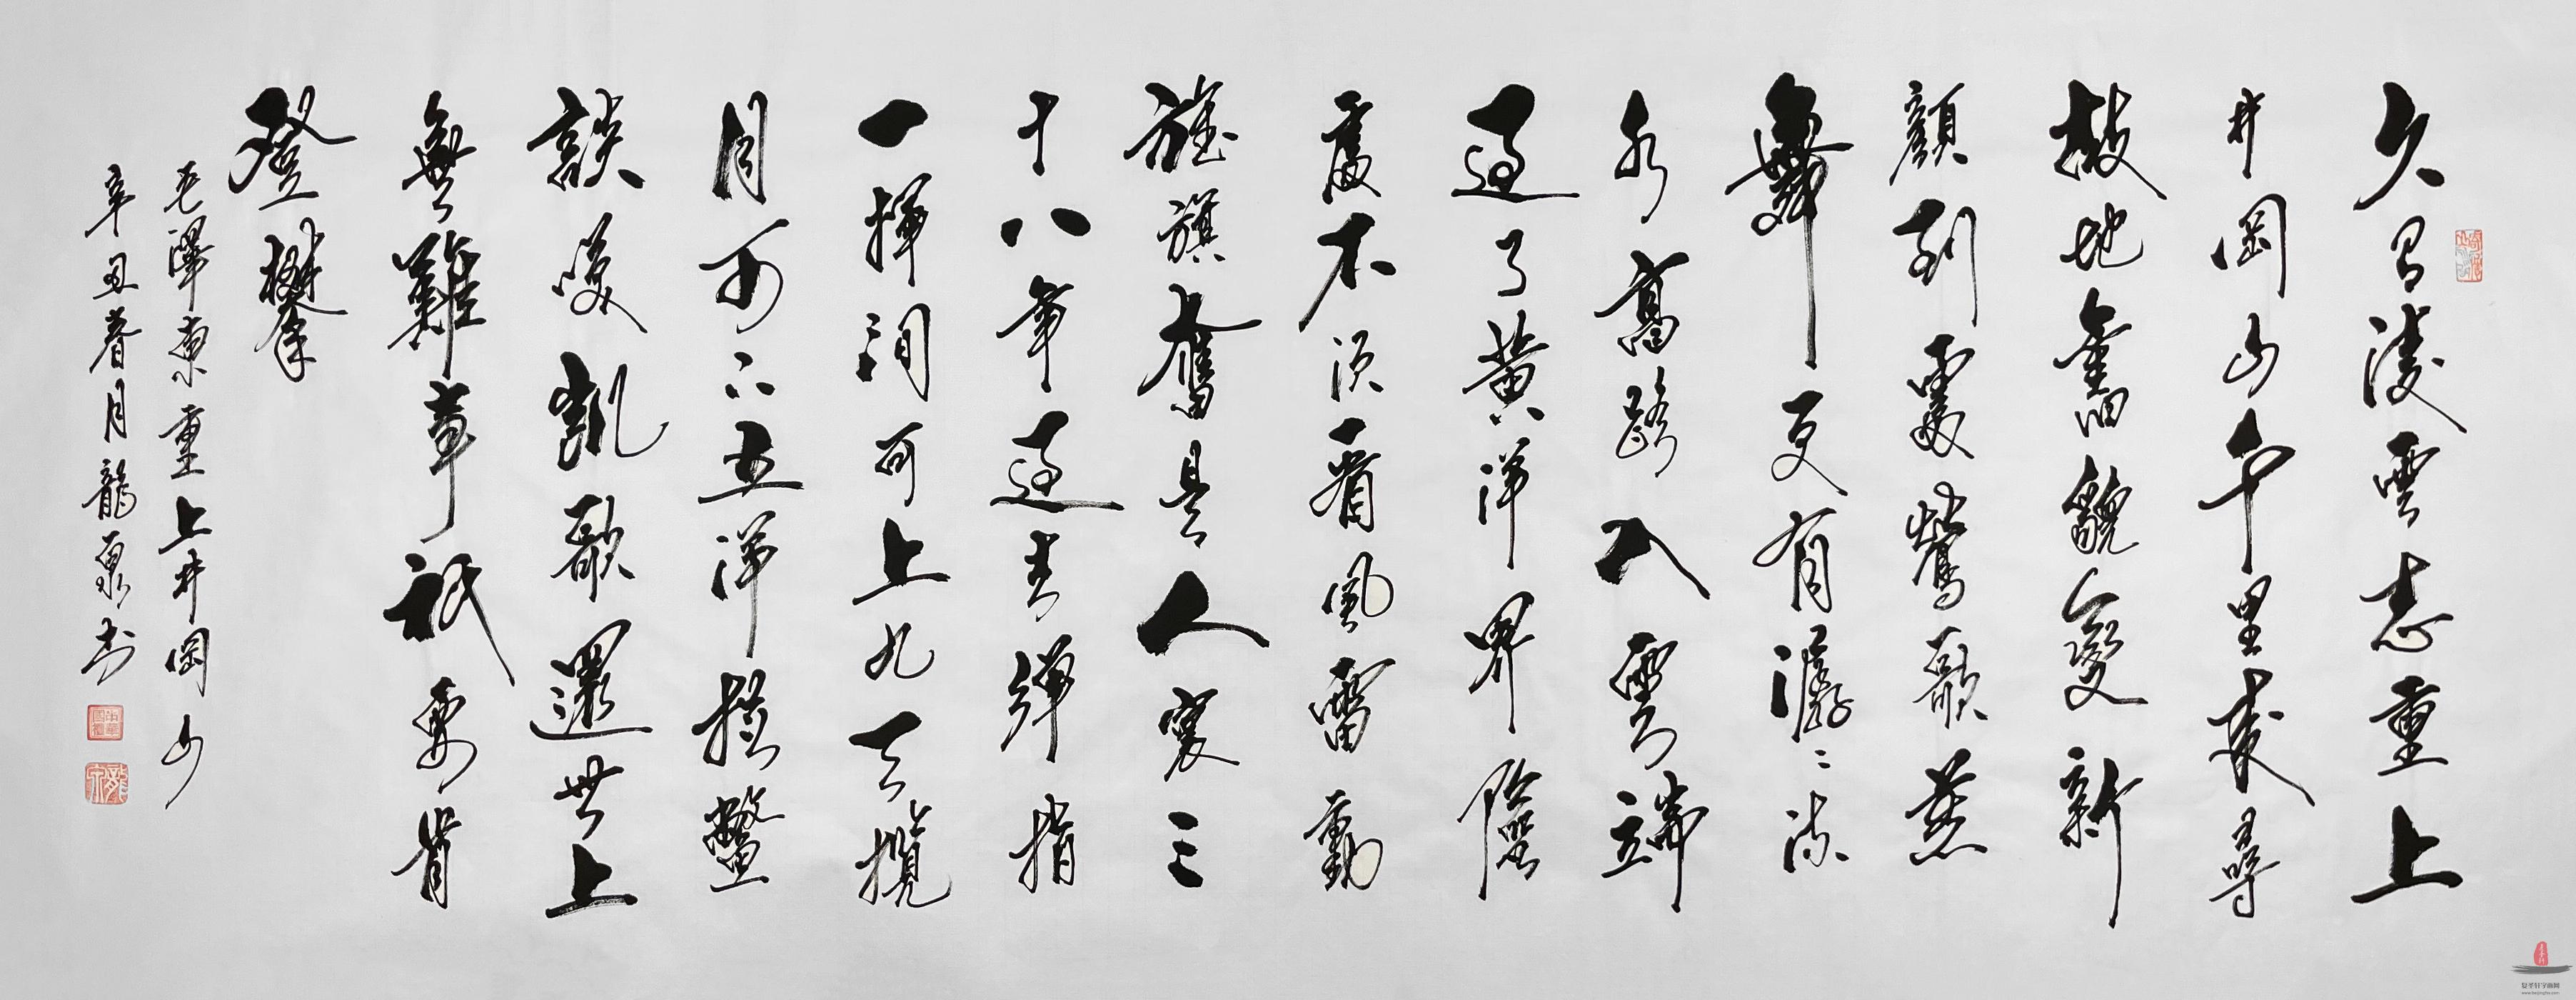 久有淩雲志重上
井岡山千里來尋
故地舊貌變新
顏到處鶯歌燕
舞更有潺潺流
水高路入雲端
過了黃洋界險
處不須看風雷動
旌旗奮是人寰三
十八年過去彈指
一揮間可上九天攬
月可下五洋捉鱉
談笑凱歌還世上
無難事祇要肯
登攀
毛澤東重上井岡山
辛丑春月龍泉書
龍泉